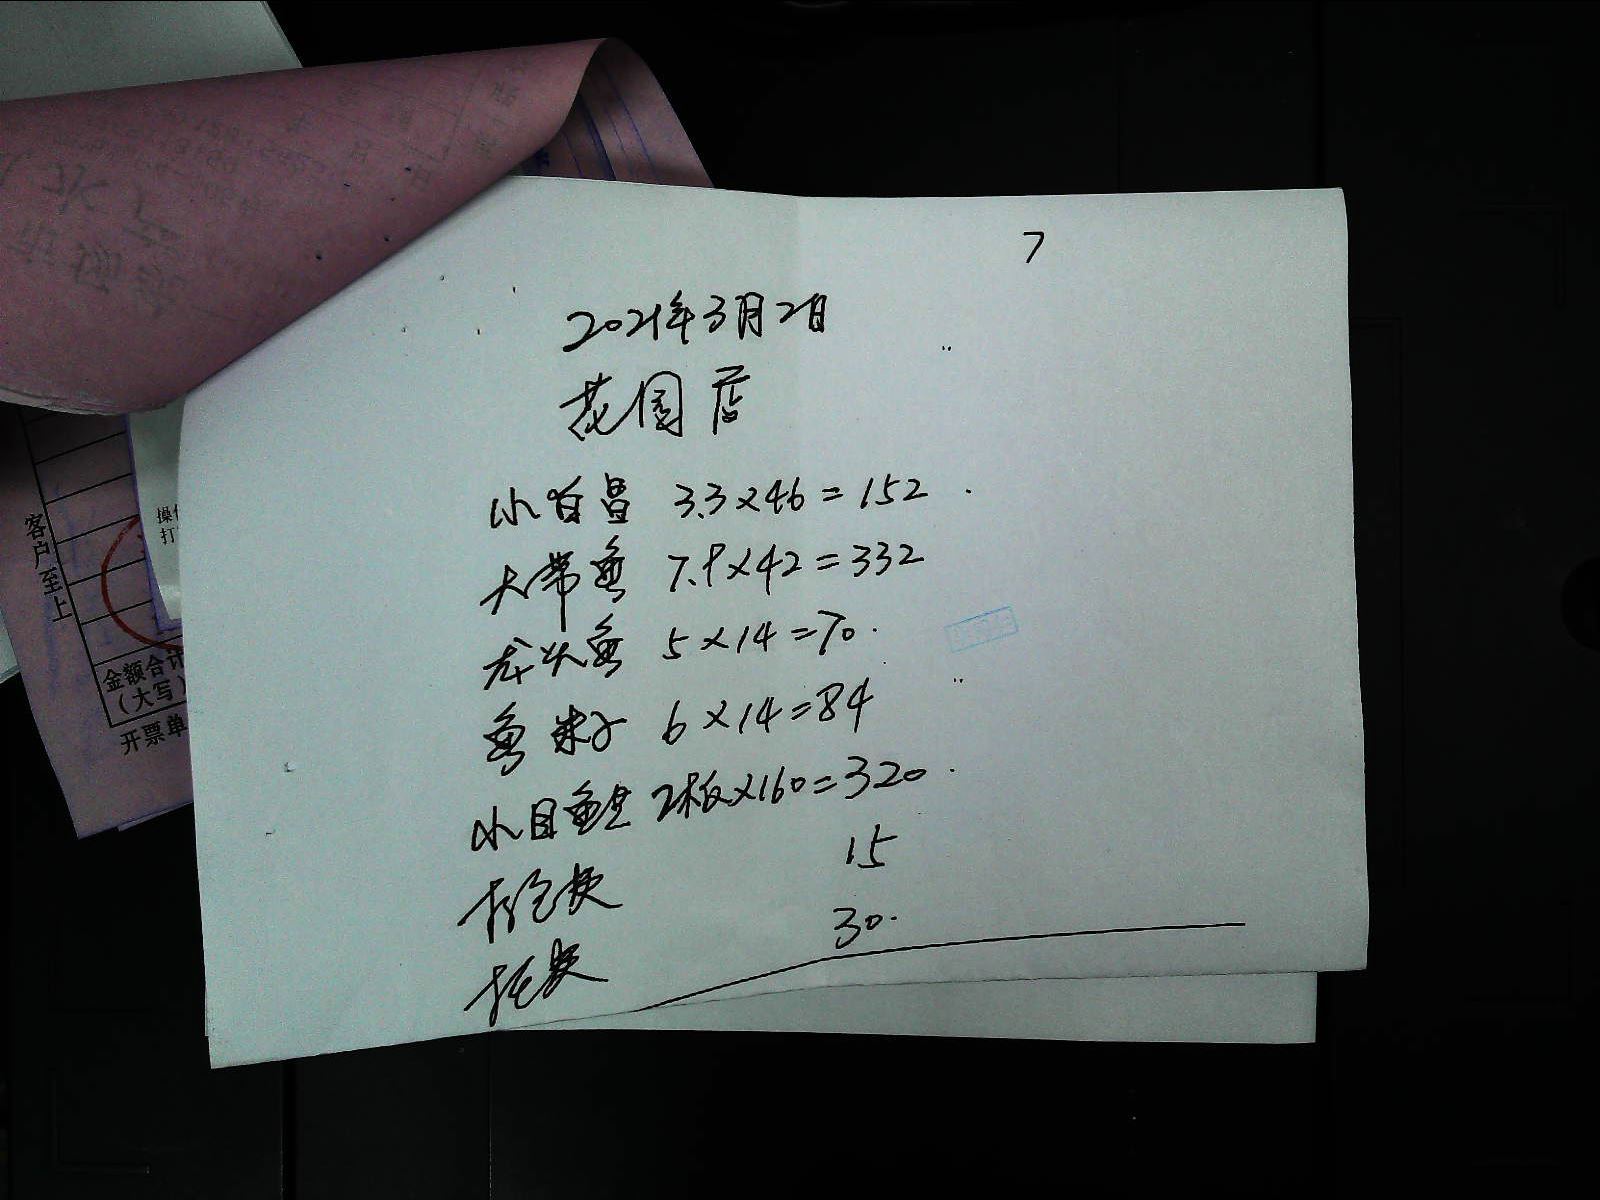 7
2021年3月2日
花园店
小白昌 3.3×46=152
大带鱼 7.9×42=332
龙头鱼 5×14=70.
鱼籽 6×14=84
小目鱼 2板×160=320
15
30.
客户至上
操作
打
金额合计
(大写)
开票单